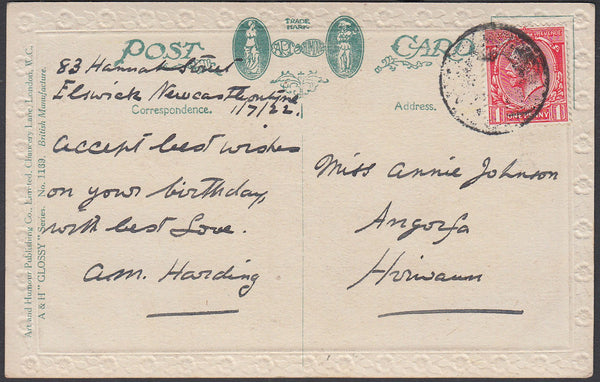 TRADE
MARK
POST CARD
ART HUMOUR
83 Hannah Street
Elswick Newcastle on Tyne
1/7/22.
Correspondence.
Accept best wishes
on your birthday,
with best Love.
A.M. Harding
Address.
Miss Annie Johnson
Angorfa
Hirwaun
1 ONE PENNY 1
Art and Humour Publishing Co., Limited, Chancery Lane, London, W.C.
A & H "GLOSSY" Series. No. 1139. British Manufacture.